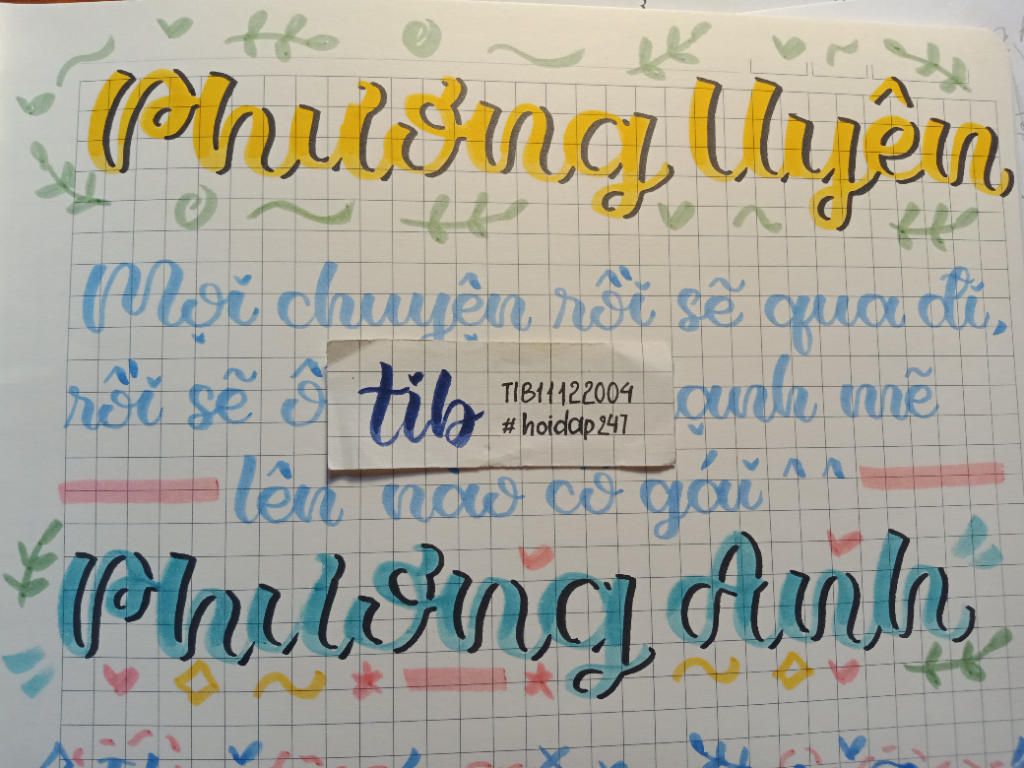 Phương Uyên,
Mọi chuyện rồi sẽ qua đi,
rồi sẽ mẽ
tib
TIB11122004
#hoidap247
lên nào cô gái ^^
Phương Anh,